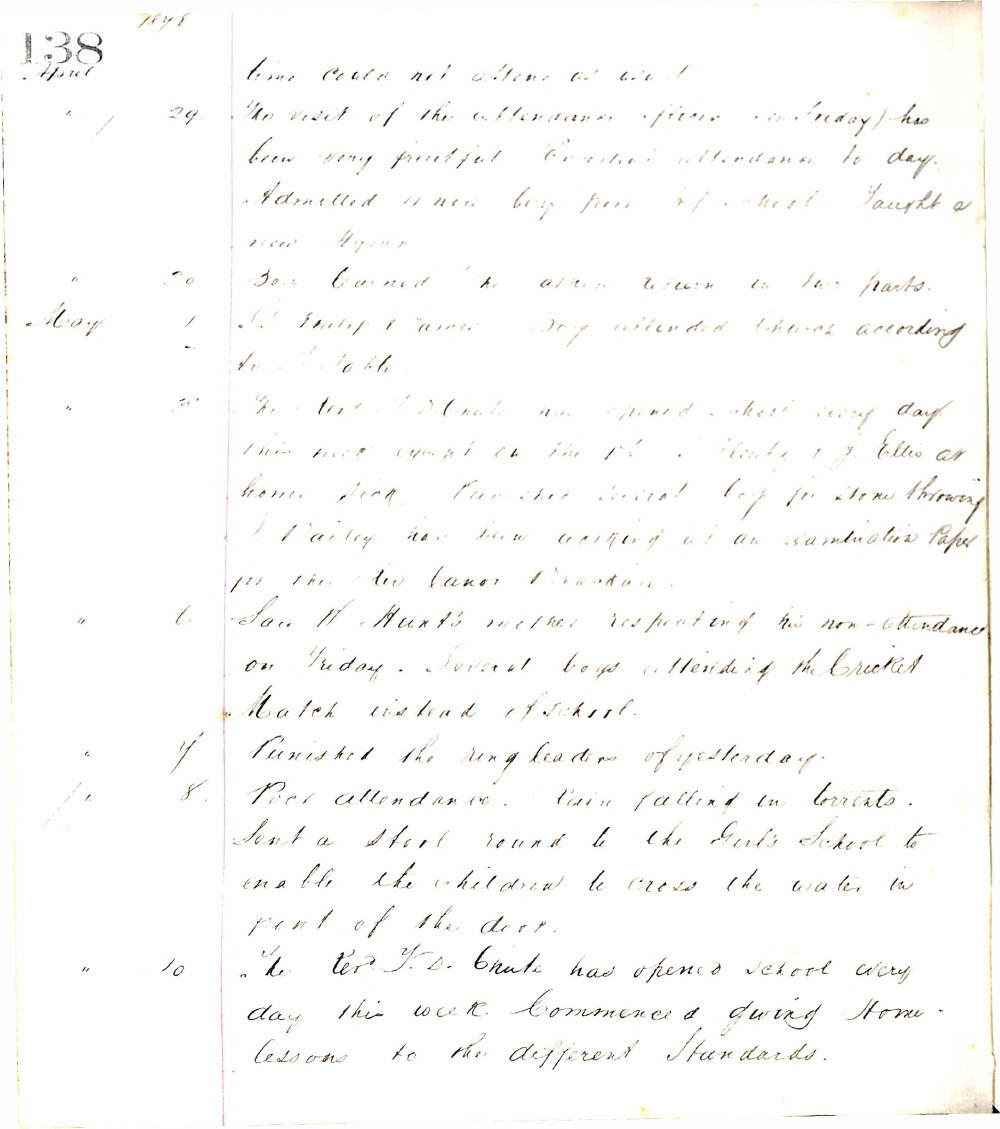 1878
138
April
time could not attend as usual
" 29. The visit of the attendance officer (on Friday) has
been very fruitful attendance to day.
Admitted a new boy free of school Taught a
new Hymn
" 30 Boys learned in two parts.
May 1 St Philip & James Boys attended Church according
to Table.
" The Revd Chute has opened school every day
this week except on the 1st. & J. Ellis at
home sick Punished several boys for stone throwing
Bailey has been working at an Examination Paper
for the Rev Canon
" 6 Saw H Hunt's mother respecting his non-attendance
on Friday. Several boys attending the Cricket
Match instead of school.
" 7 Punished the ringleaders of yesterday.
" 8. Poor attendance. Rain falling in torrents.
Sent a stool round to the Girl's School to
enable the children to cross the water in
front of the door.
" 10 The Revd T. D. Chute has opened school every
day this week Commenced giving Home-
lessons to the different Standards.